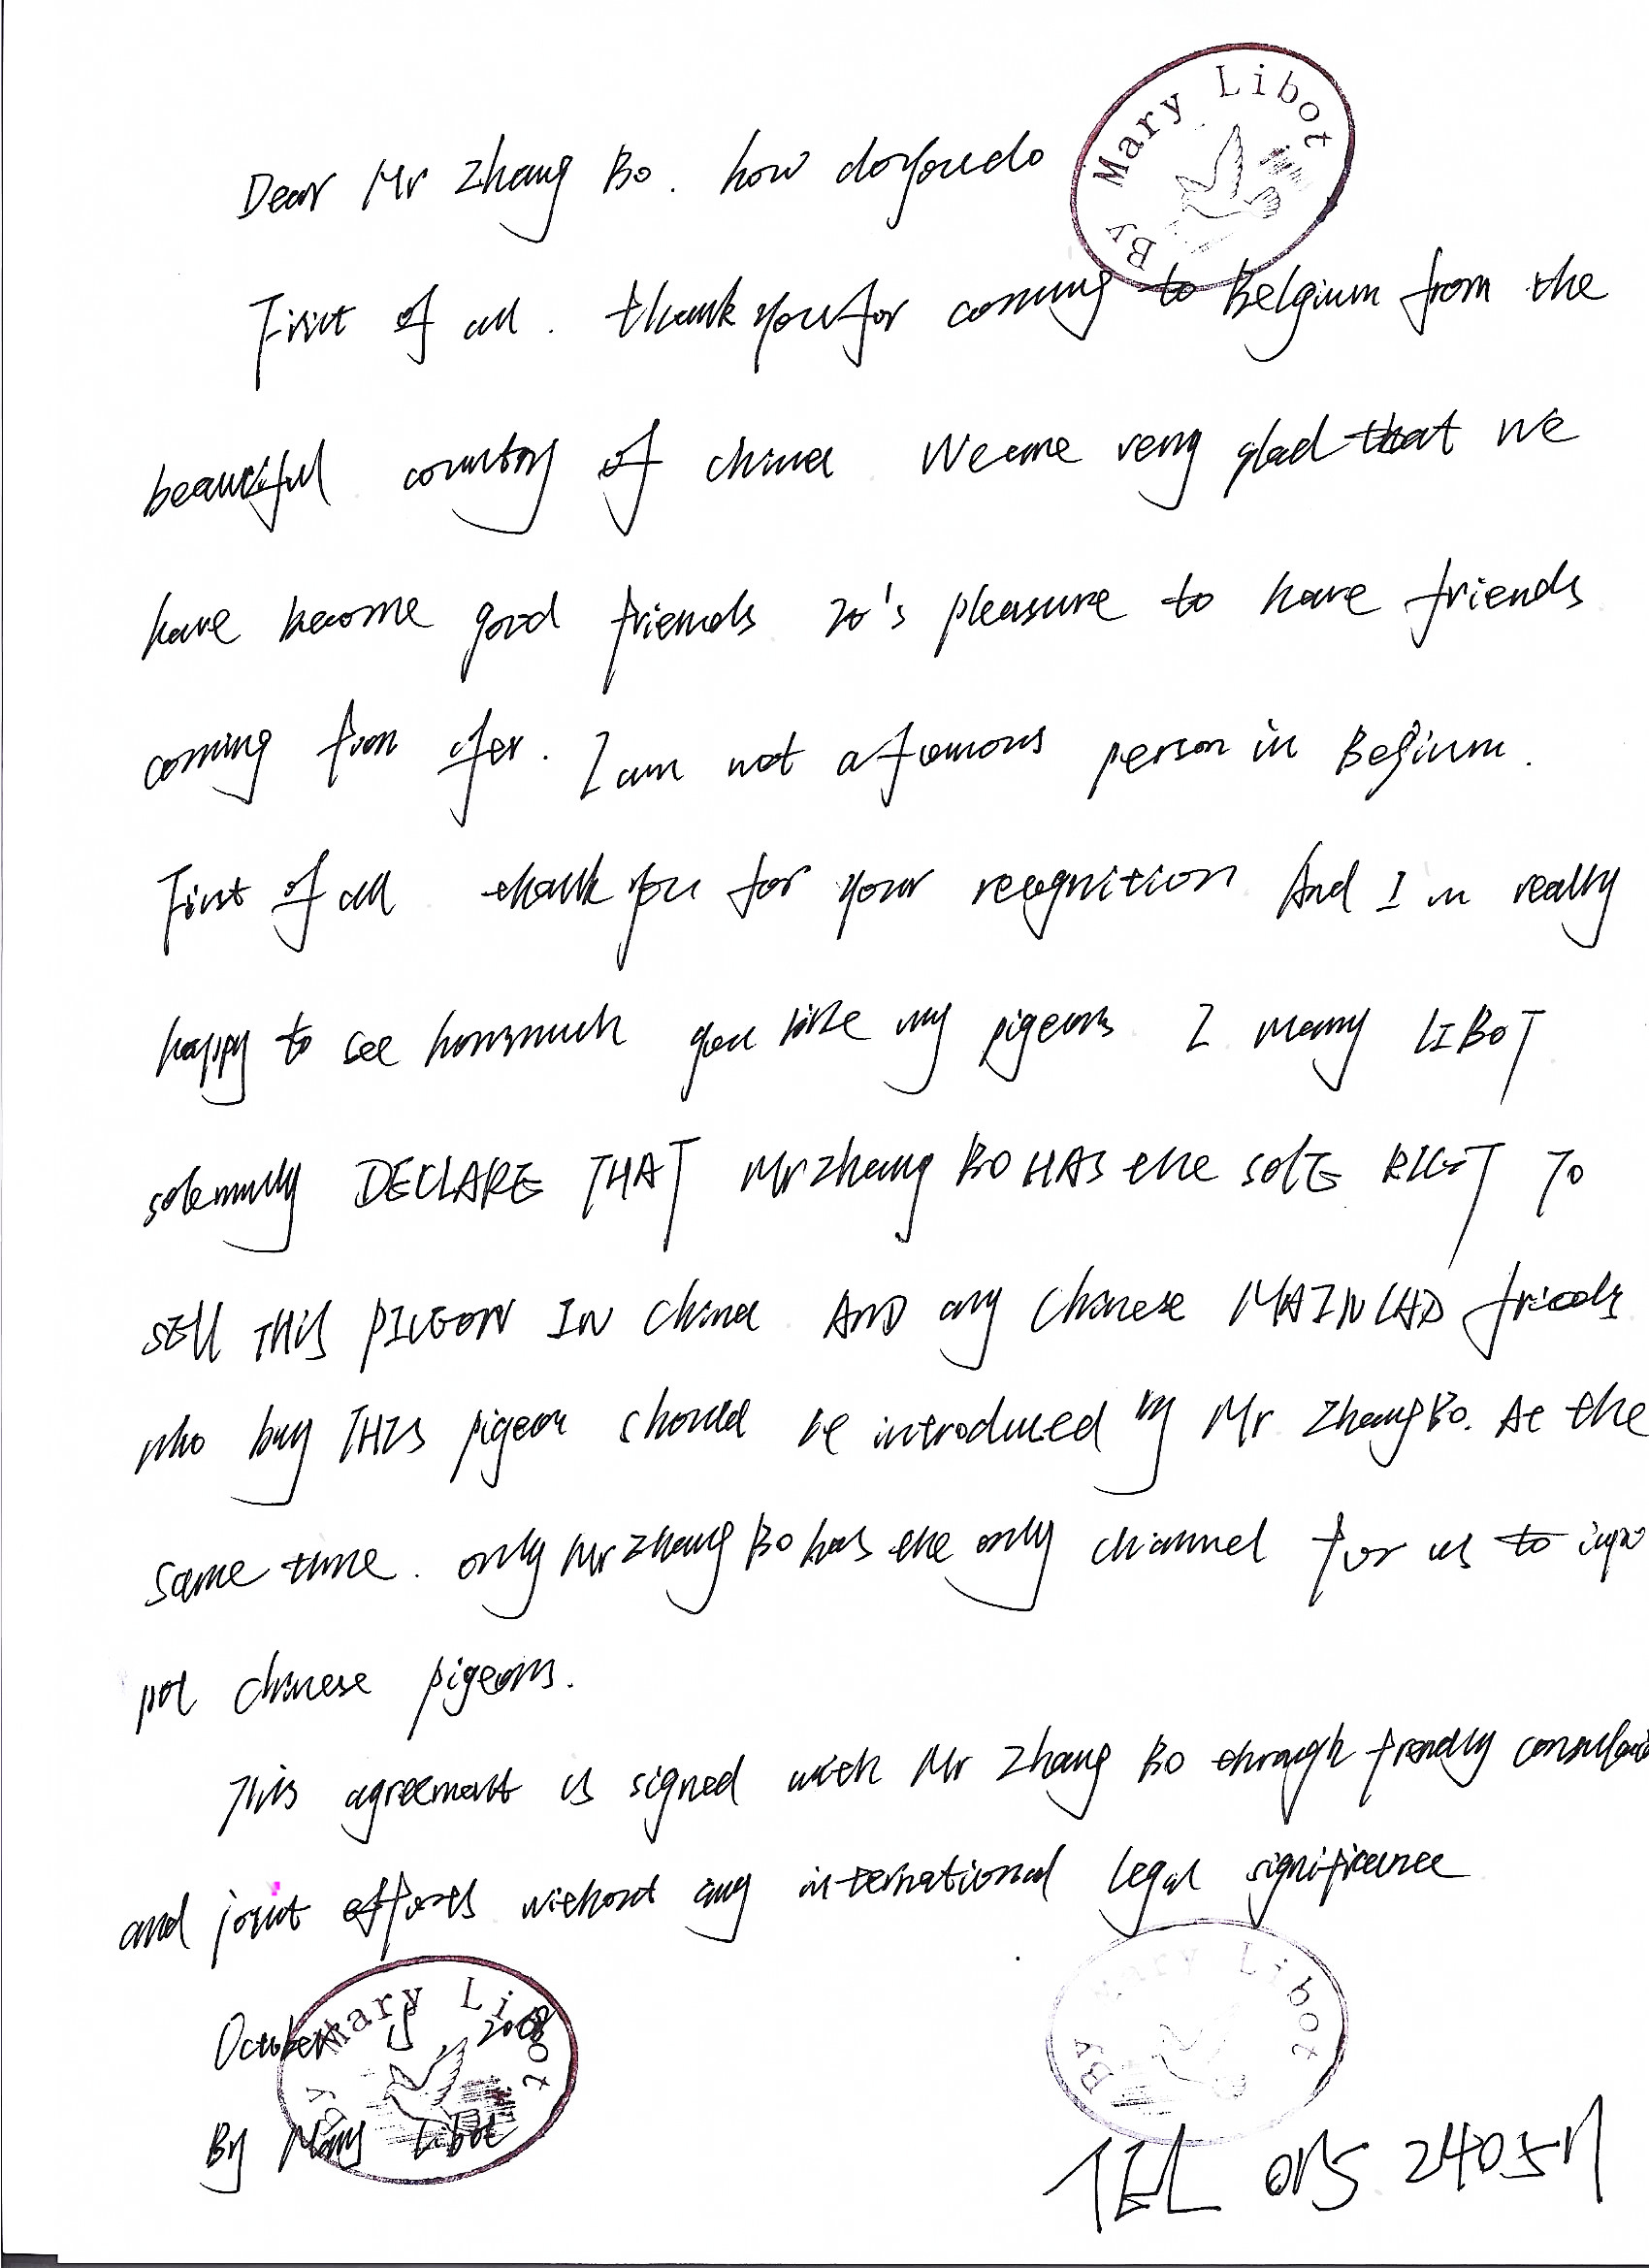 By Mary Libot
Dear Mr Zhang Bo. how do you do
First of all. thank you for coming to Belgium from the
beautiful country of china We are very glad that we
have become good friends It's pleasure to have friends
coming from afer. I am not a famous person in Belgium.
First of all thank you for your recognition And I m really
happy to see how much you like my pigeons I Mary LIBOT
solemnly DECLARE THAT Mr Zhang BO HAS the SOLE RIGT TO
SEll THIS PIGEON IN China AND any Chinese MAINLAD friends
who buy THIS pigeon should be introduced by Mr Zhang Bo. At the
same time. only Mr Zhang Bo has the only channel for us to
Chinese pigeons.
This agreement is signed with Mr Zhang Bo through frendly
and joint efforts without any international legal significance
October 2008
By Mary Libot
By Mary Libot
By Mary Libot
TEL